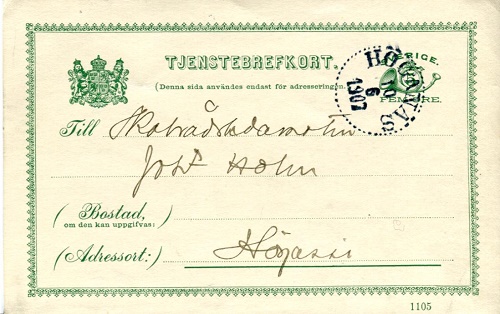 TJENSTEBREFKORT.
(Denna sida användes endast för adresseringen.)
HÖGANÄS
10
6
1907
FEM ÖRE.
Till Skolrådsledamoten
Joh Holm
(Bostad,
om den kan uppgifvas:)
(Adressort:) Höganäs
1105